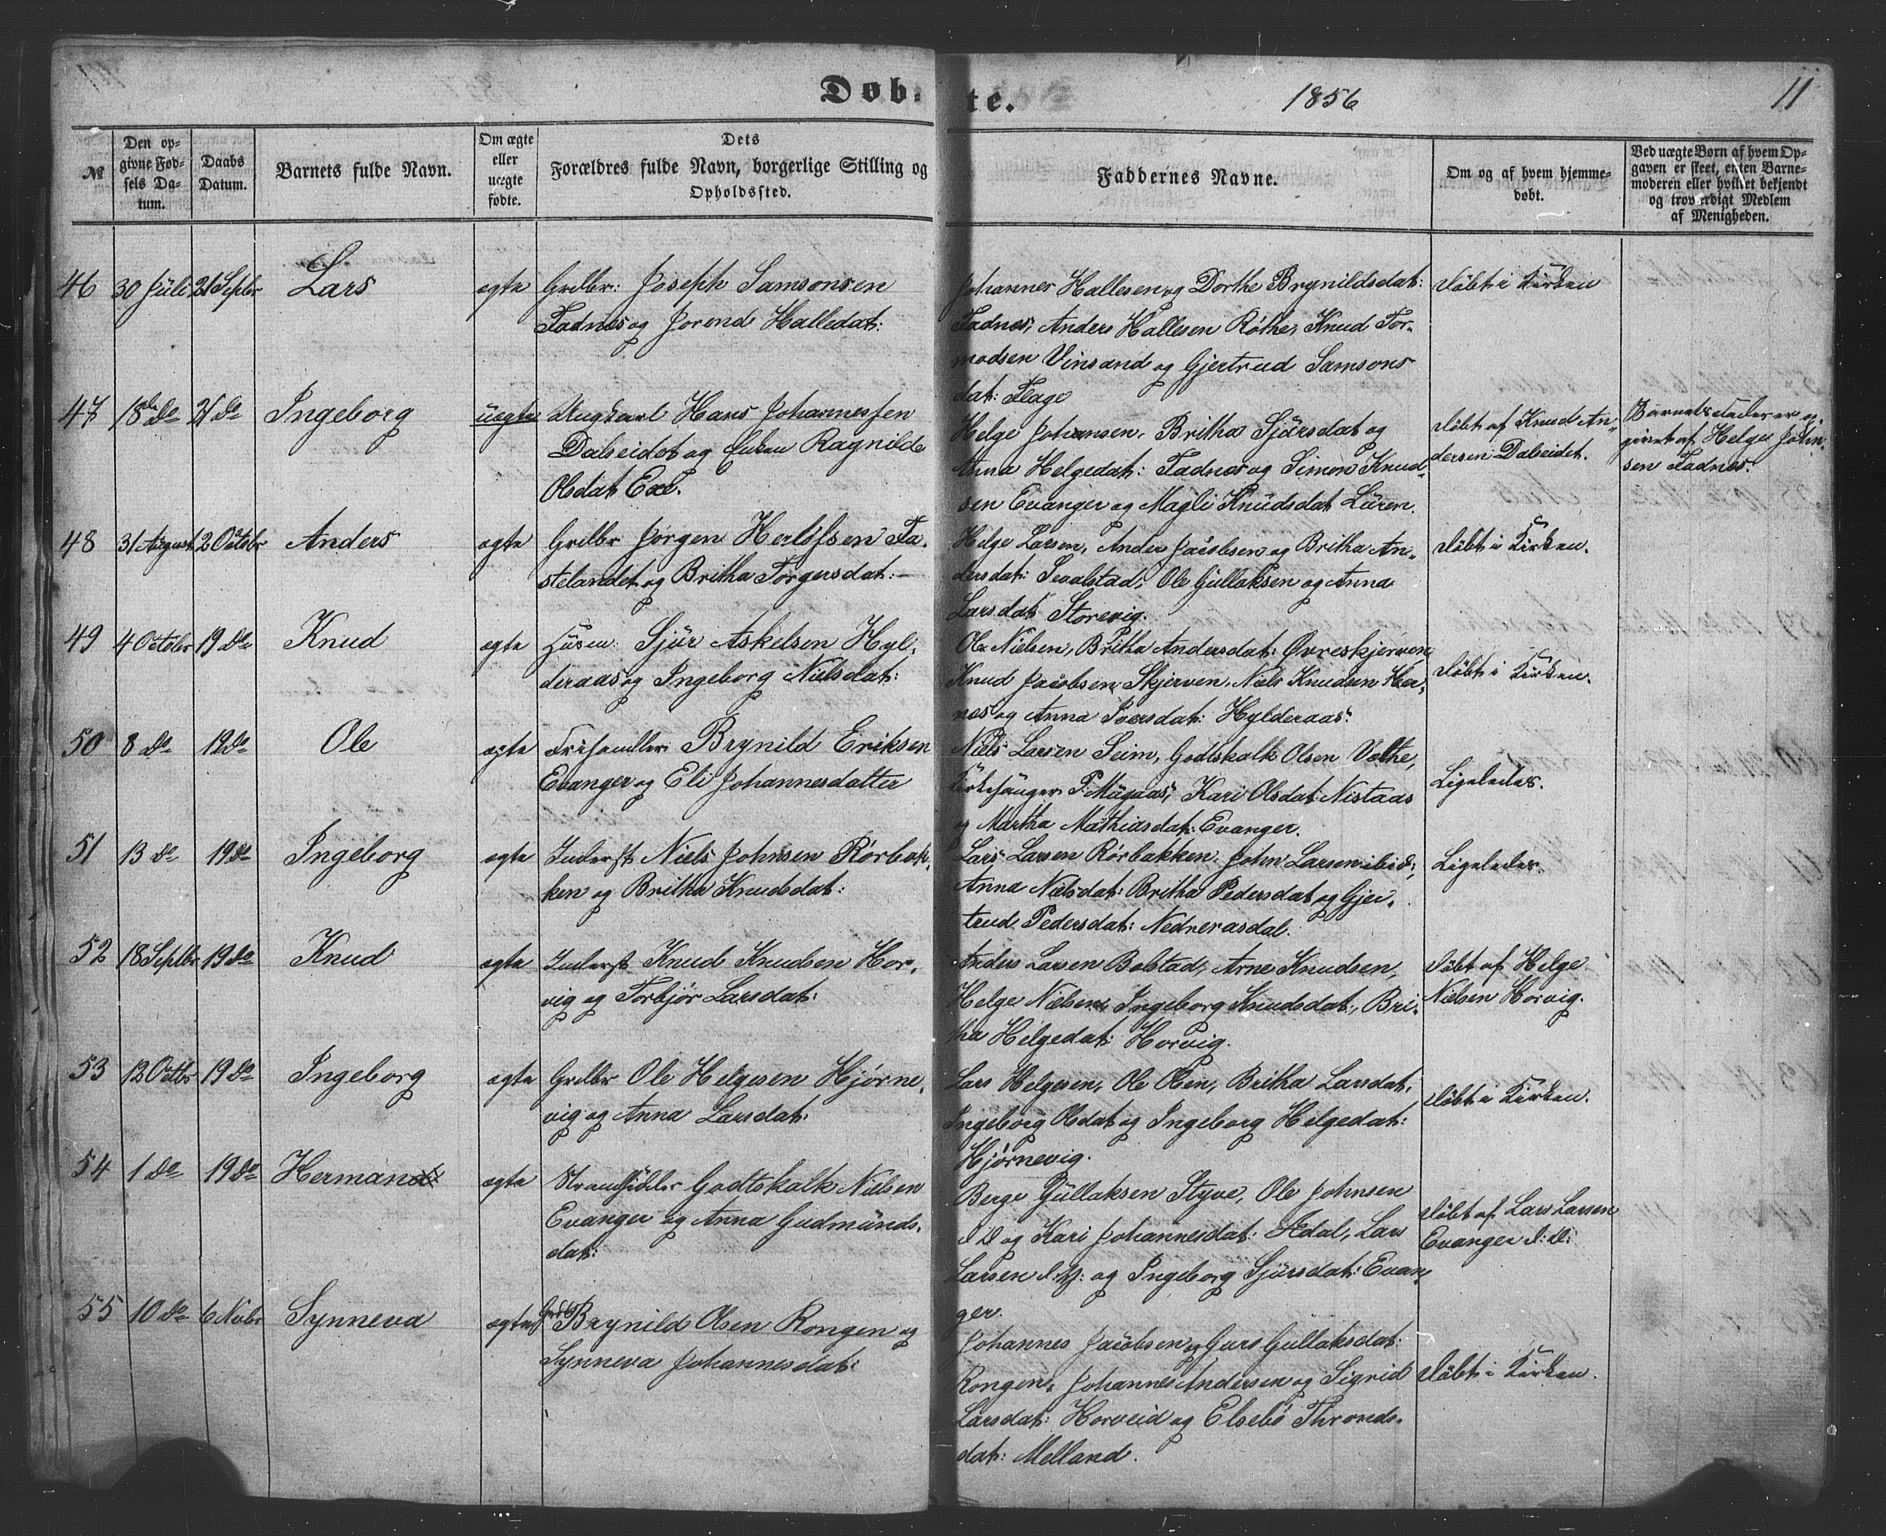 Døb- te. 1856 11
№
Den op-
givne Fød-
sels Da-
tum.
Daabs
Datum.
Barnets fulde Navn.
Om ægte
eller
uægte
fødte.
Dets
Forældres fulde Navn, borgerlige Stilling og
Opholdssted.
Faddernes Navne.
Om og af hvem hjemme-
døbt.
Ved uægte Børn af hvem Op-
gaven er skeet, enten Barne-
moderen eller hvilket bekjendt
og troværdigt Medlem
af Menigheden.
46 30 Juli 21 Septbr Lars ægte Grdbr: Joseph Samsonsen
Fadnes og Jorond Halledat:
Johannes Hallesen og Dorthe Brynildsdat:
Fadnes, Anders Hallesen Røthe, Knud Tor-
modsen Vinsand og Gjertrud Samsons
dat: Flage
Døbt i Kirken
47 18 do 21 do Ingeborg uægte Ungkarl Hans Johannessen
Dalseidet og Enken Ragnilde
Olsdat Exe.
Helge Johansen, Britha Sjursdat og
Anna Helgedat: Fadnes og Simon Knud-
sen Evanger og Magli Knudsdat Luren.
Døbt af Knud An-
dersen Dalseidet.
Barnets Fader er op-
givet af Helge John-
sen Fadnes.
48 31 August 2 Octobr Anders ægte Grdbr Jørgen Herlofsen Fa-
stelandet og Britha Torgersdat:
Helge Larsen, Anders Jacobsen og Britha An-
dersdat: Sevalstad, Ole Gullaksen og Anna
Larsdat Storevig.
Døbt i Kirken.
49 4 Octobr 19 do Knud ægte Husm: Sjur Askelsen Hyl-
deraas og Ingeborg Nielsdat:
Ole Nielsen, Britha Andersdat: Øvreskjerven,
Knud Jacobsen Skjerven, Niels Knudsen Her-
nes og Anna Iversdat: Hylderaas.
Døbt i Kirken.
50 8 do 19 do Ole ægte Frihandler Brynild Eriksen
Evanger og Eli Johannesdatter
Niels Larsen Seim, Godtskalk Olsen Væthe,
Kirkesanger P. Mugaas, Kari Olsdat: Nistaas
og Martha Mathiasdat: Evanger.
Ligeledes.
51 13 do 19 do Ingeborg ægte Inderst Niels Johnsen Rørbak-
ken og Britha Knudsdat:
Lars Larsen Rørbakken, John Larsen ibid:,
Anna Nielsdat: Britha Pedersdat og Gjer-
trud Pedersdat: Nedreraasdal.
Ligeledes.
52 18 Septbr 19 do Knud ægte Inderst Knud Knudsen Hor-
vig og Torbjør Larsdat:
Anders Larsen Bolstad, Arne Knudsen,
Helge Nielsen, Ingeborg Knudsdat:, Bri-
tha Helgedat: Horvig.
Døbt af Helge
Nielsen Horvig.
53 12 Octbr 19 do Ingeborg ægte Grdbr Ole Helgesen Hjørne-
vig og Anna Larsdat:
Lars Helgesen, Ole Olsen, Britha Larsdat:
Ingeborg Olsdat og Ingeborg Helgedat:
Hjørnevig.
Døbt i Kirken.
54 1 do 19 do Herman ægte Strandsidder Godtskalk Nielsen
Evanger og Anna Gudmunds-
dat:
Berge Gullaksen Styve, Ole Johnsen
og Kari Johannesdat: Ædal, Lars
Larsen og Ingeborg Sjursdat: Evan-
ger.
Døbt af Lars Larsen
Evanger
55 10 do 6 Novbr Synneva ægte Grdbr Brynild Olsen Rongen og
Synneva Johannesdat:
Johannes Jacobsen og Guro Gullaksdat:
Rongen, Johannes Andersen og Sigrid
Larsdat: Horveid og Elsebe Thronds-
dat: Melland.
Døbt i Kirken.